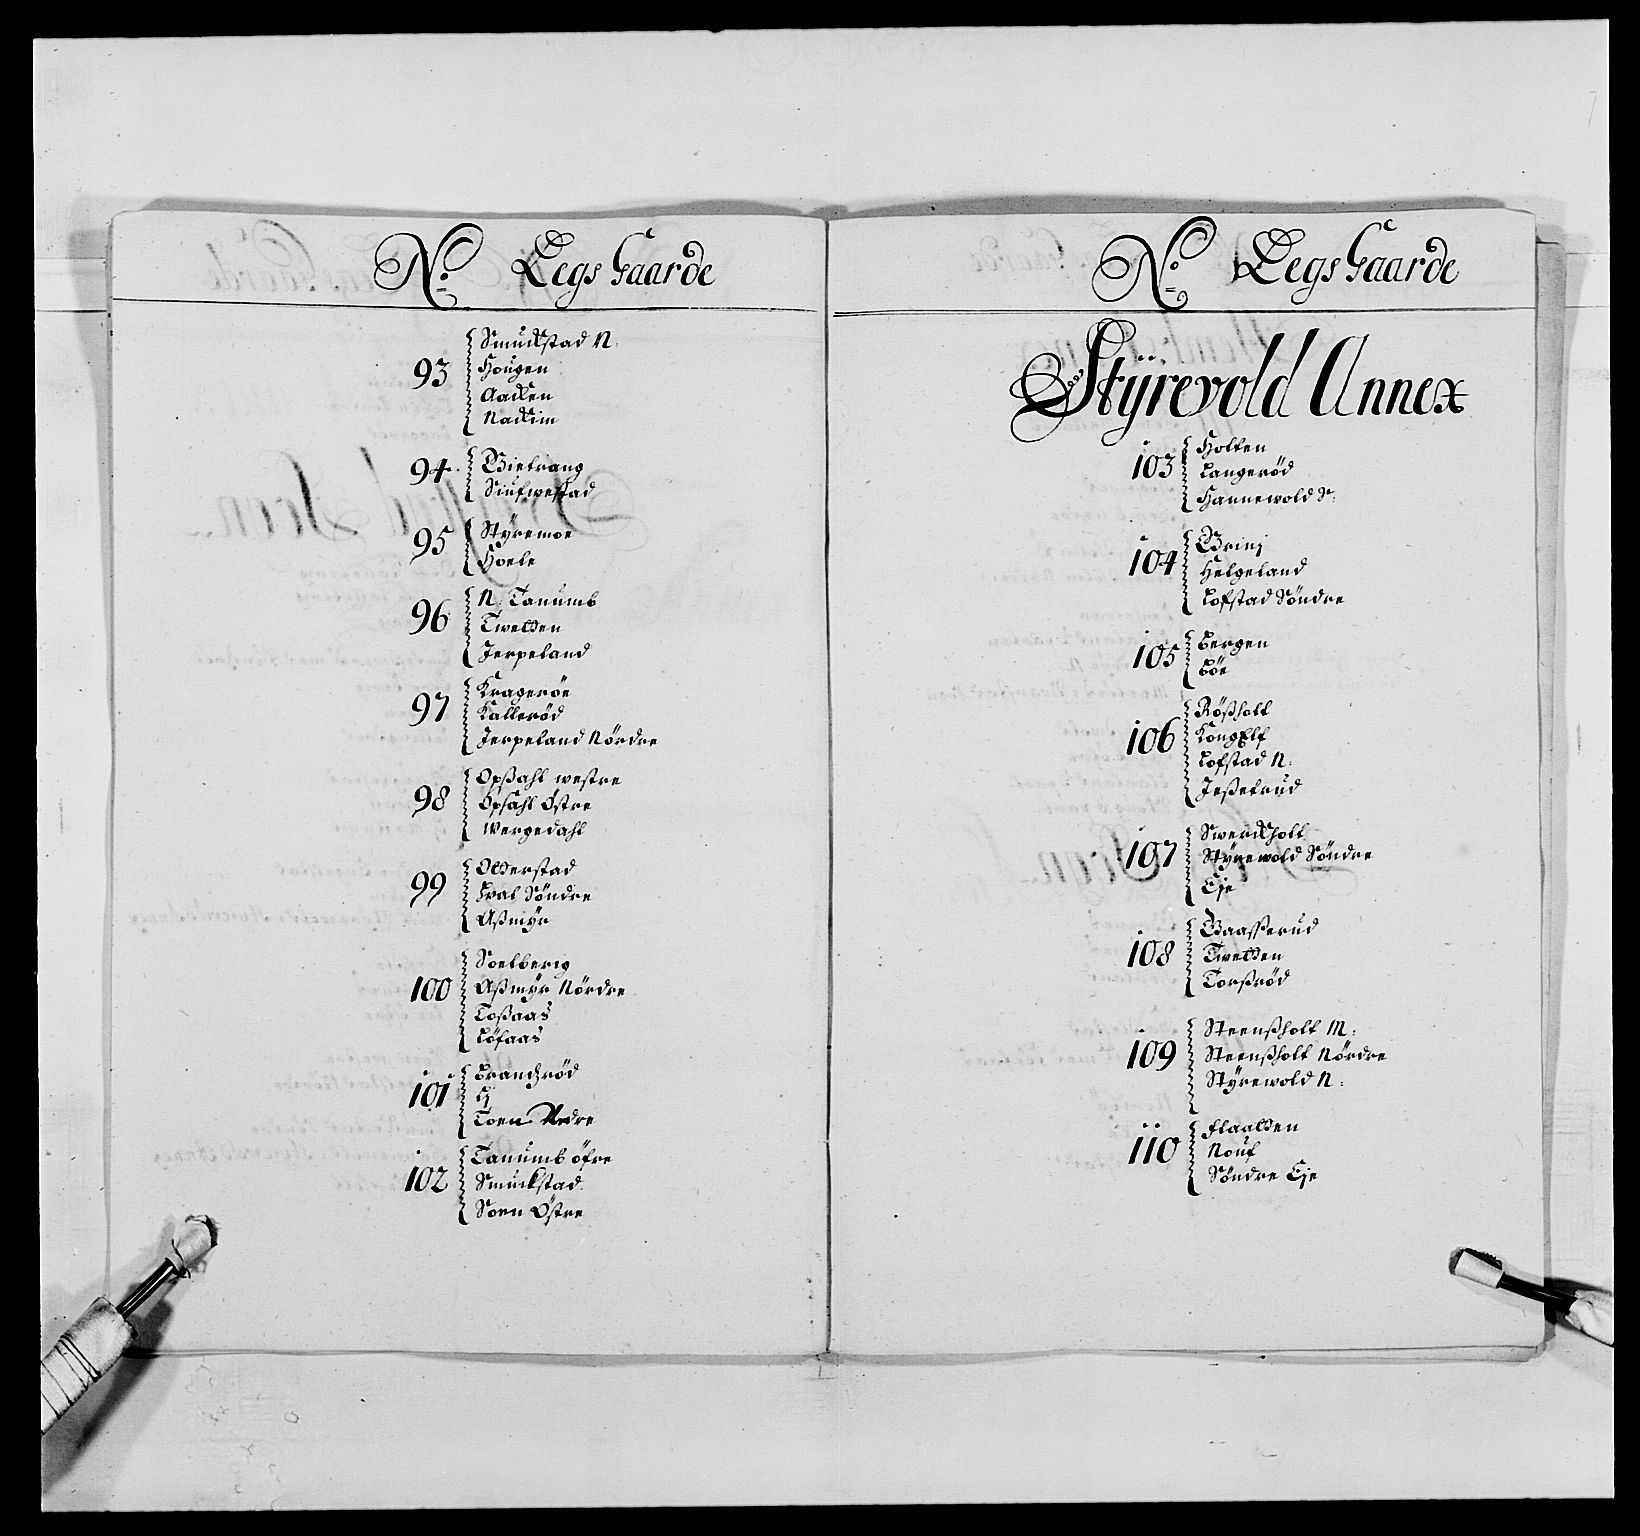 No. Legs Gaarde
93
Smuckstad N.
Hougen
Aacken
Nackim
94
Bietrang
Siufwestad
95
Styremoe
Hoele
96
N: Tanumb
Twetten
Jerpeland
97
Kragerøe
Kallerød
Jerpeland Nørdre
98
Opßahl westre
Opsahl Østre
Wergedahl
99
Otterstad
Hval Søndre
Aßmyr
100
Soelberig
Aßmyr Nørdre
Toßaas
Løfaas
101
Brandzrød
Ej
Toen Nedre
102
Tanumb øfre
Smuckstad
Soen Østre
No. Legs Gaarde
Stÿrevold Annex
103
Holten
Langerød
Hannewold S:
104
Brinj
Helgeland
Lofstad Søndre
105
Bergen
Bøe
106
Rößholt
KongElf
Lofstad N:
Jeßetrud
107
Swerckholt
Stÿrewold Søndre
Eje
108
Baasserud
Twetten
Torßrød
109
Steenßholt M:
Steenßholt Nørdre
Stÿrewold N:
110
Flaatten
Nouf
Søndre Eje